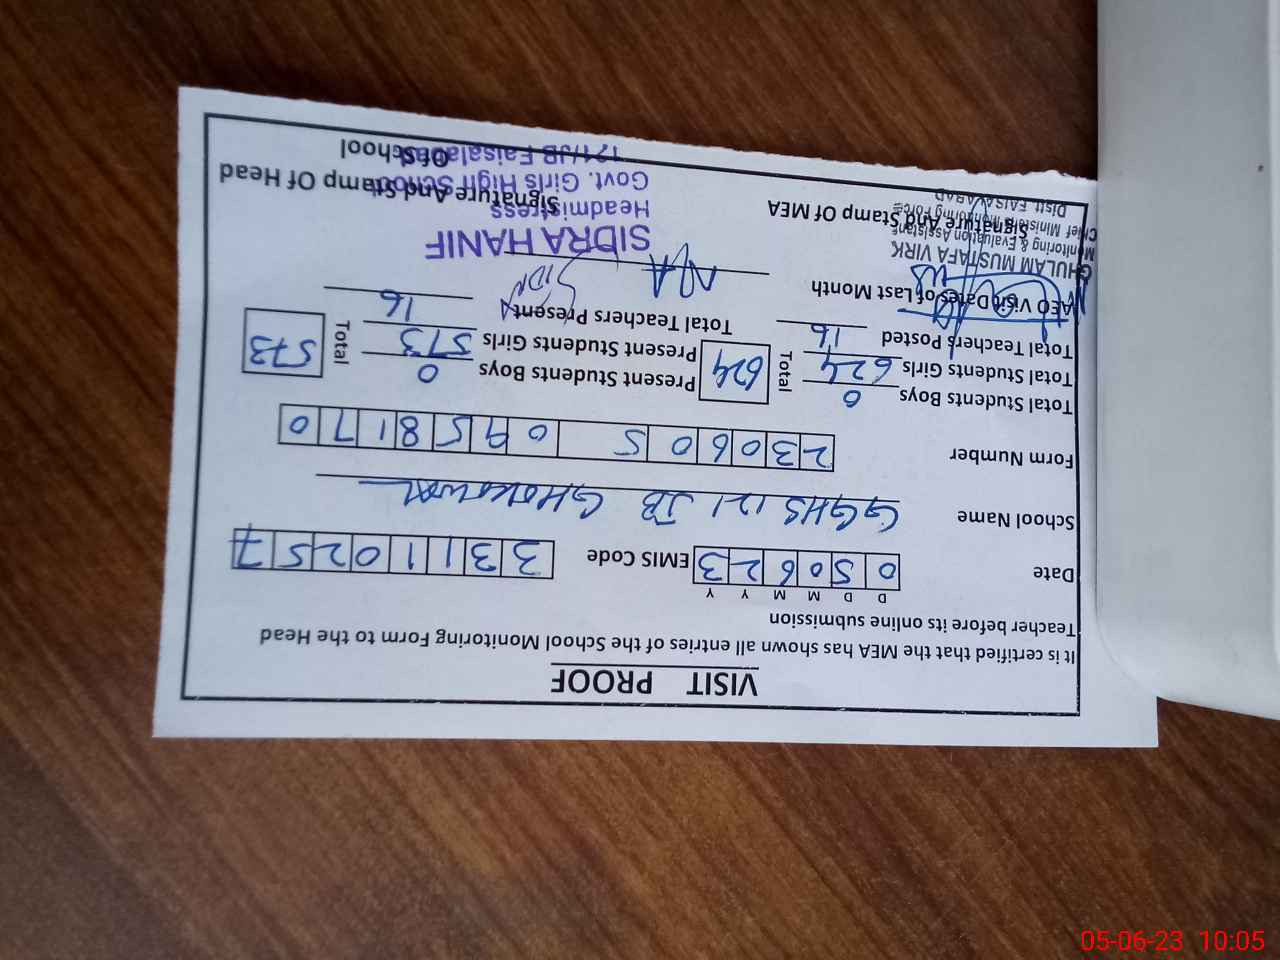 VISIT PROOF
It is certified that the MEA has shown all entries of the School Monitoring Form to the Head
Teacher before its online submission
D D M M Y Y
Date 0 5 0 6 2 3 EMIS Code 3 3 1 1 0 2 5 7
School Name GGHS 121 JB GHOKOWAL
Form Number 2 3 0 6 0 5 0 9 5 8 1 7 0
Total Students Boys 0 Total 624 Present Students Boys 0 Total 573
Total Students Girls 624 Present Students Girls 573
Total Teachers Posted 16 Total Teachers Present 16
AEO Visit Dates of Last Month N/A
GHULAM MUSTAFA VIRK
Monitoring & Evaluation Assistant
Chief Ministers Monitoring Force
Distt. FAISALABAD
Signature And Stamp Of MEA
SIDRA HANIF
Headmistress
Govt. Girls High School
121/JB Faisalabad
Signature And Stamp Of Head
Of School
05-06-23 10:05